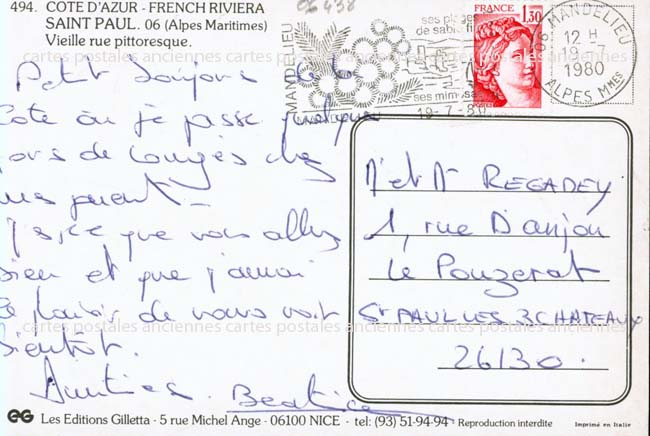 494. COTE D'AZUR - FRENCH RIVIERA
SAINT PAUL. 06 (Alpes Maritimes)
Vieille rue pittoresque.
06 438
MANDELIEU
ses plages
de sable fin
ses mimosas
19-7-80
FRANCE
1,30
POSTES
06 MANDELIEU
12 H
19-7
1980
ALPES Mmes
Petit bonjour de la
Côte où je passe quelques
jours de congés chez
mes parents.
J'espère que vous allez
bien et que j'aurai
le plaisir de vous voir
bientôt.
Amitiés. Béatrice
Mr et Me REGADEY
1, rue D'anjou
Le Pouzerat
St PAUL LES 3 CHATEAUX
26130.
cartes postales anciennes cartes postales anciennes cartes postales anciennes
cartes postales anciennes cartes postales anciennes cartes postales anciennes
EG Les Editions Gilletta - 5 rue Michel Ange - 06100 NICE - tel: (93) 51-94-94 Reproduction interdite Imprimé en Italie